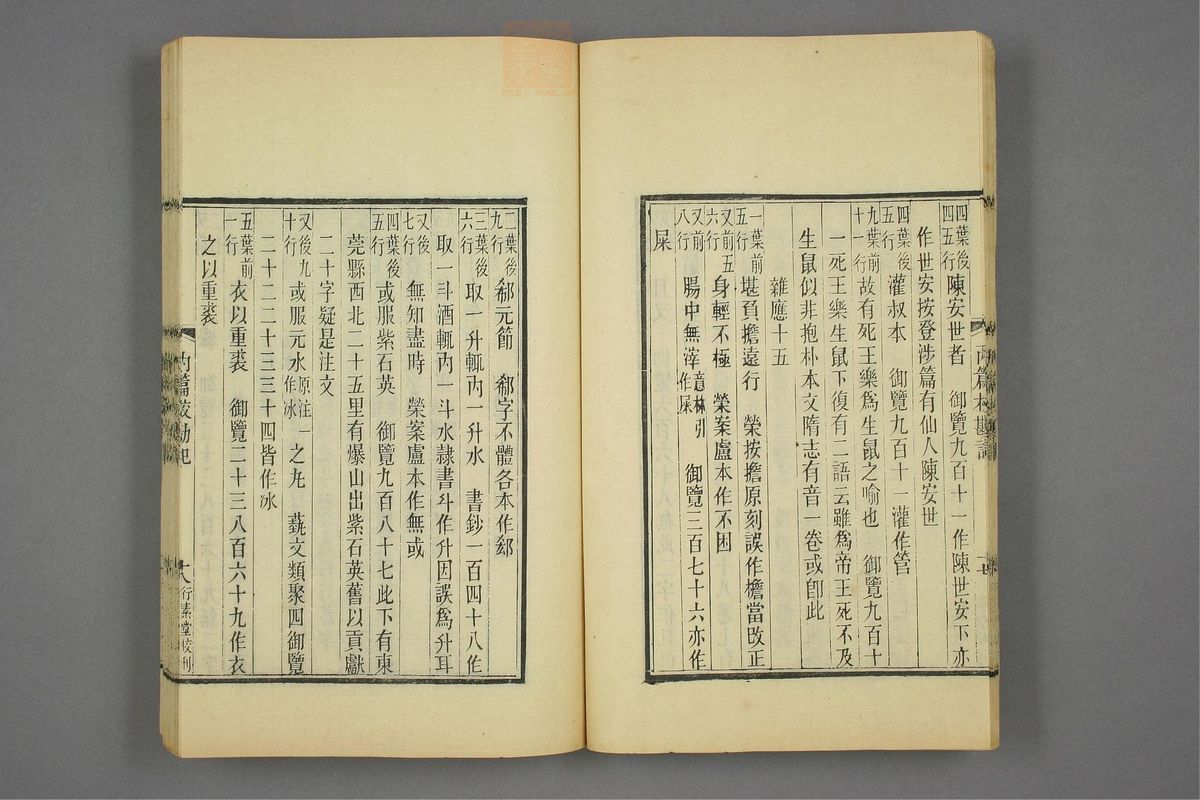 四葉後四五行陳安世者　御覽九百十一作陳世安下亦
作世安按登涉篇有仙人陳安世
四葉後五行灌叔本　御覽九百十一灌作管
九葉前十一行故有死王樂爲生鼠之喻也　御覽九百十
一死王樂生鼠下復有二語云雖爲帝王死不及
生鼠似非抱朴本文隋志有音一卷或卽此
雜應十五
一葉前五行堪負擔遠行　榮按擔原刻誤作檐當改正
又前五六行身輕不極　榮案盧本作不困
又前八行腸中無滓意林引作屎　御覽三百七十六亦作
屎
內篇校勘記
二葉後九行郄元節　郄字不體各本作郄
三葉後六行取一升輒內一升水　書鈔一百四十八作
取一斗酒輒內一斗水隸書斗作升因誤爲升耳
又後七行無知盡時　榮案盧本作無或
四葉後五行或服紫石英　御覽九百八十七此下有東
莞縣西北二十五里有爆山出紫石英舊以貢獻
二十字疑是注文
又後九十行或服元水原注一作冰之丸　蓺文類聚四御覽
二十二二十三三十四皆作冰
五葉前一行衣以重裘　御覽二十三八百六十九作衣
之以重裘
內篇校勘記
十八
行素堂校刊